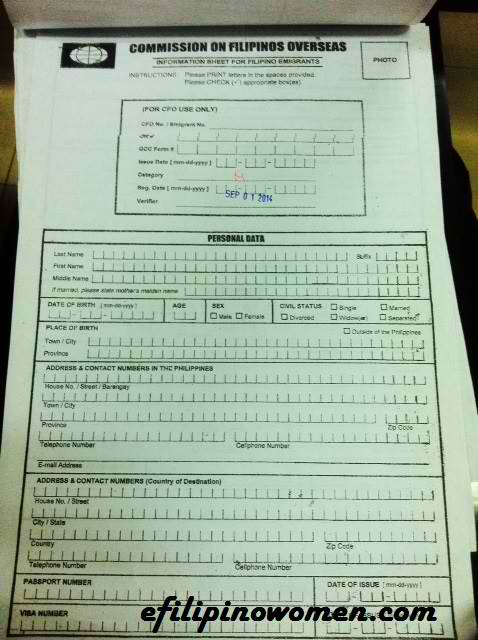 COMMISSION ON FILIPINOS OVERSEAS
INFORMATION SHEET FOR FILIPINO EMIGRANTS
INSTRUCTIONS: Please PRINT letters in the spaces provided.
Please CHECK (✓) appropriate box(es).
PHOTO
(FOR CFO USE ONLY)
CFO No. / Emigrant No.
OR #
GCC Form #
Issue Date [ mm-dd-yyyy ]
Category
Reg. Date [ mm-dd-yyyy ] SEP 01 2014
Verifier
PERSONAL DATA
Last Name Suffix
First Name
Middle Name
If married, please state mother's maiden name
DATE OF BIRTH [mm-dd-yyyy] AGE SEX CIVIL STATUS Single Married
Male Female Divorced Widow(er) Separated
PLACE OF BIRTH Outside of the Philippines
Town / City
Province
ADDRESS & CONTACT NUMBERS IN THE PHILIPPINES
House No. / Street / Barangay
Town / City
Province Zip Code
Telephone Number Cellphone Number
E-mail Address
ADDRESS & CONTACT NUMBERS (Country of Destination)
House No. / Street
City / State
Country Zip Code
Telephone Number Cellphone Number
PASSPORT NUMBER DATE OF ISSUE [mm-dd-yyyy]
VISA NUMBER
efilipinowomen.com